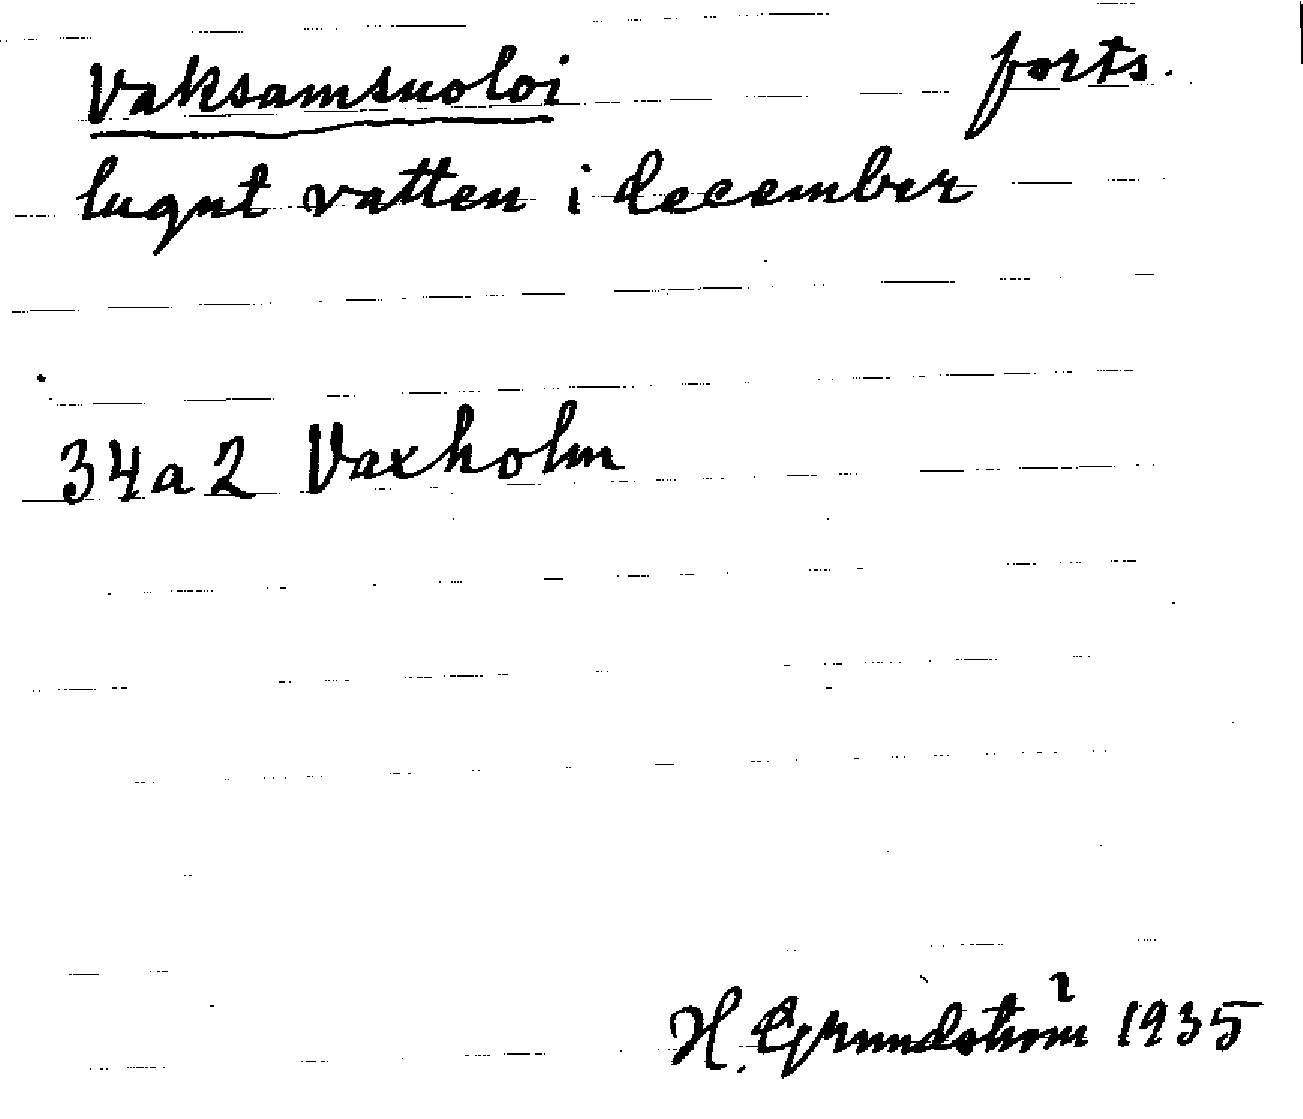 Vaksamsuoloi forts.
lugnt vatten i december
34a2 Vaxholm
H. Grundström 1935